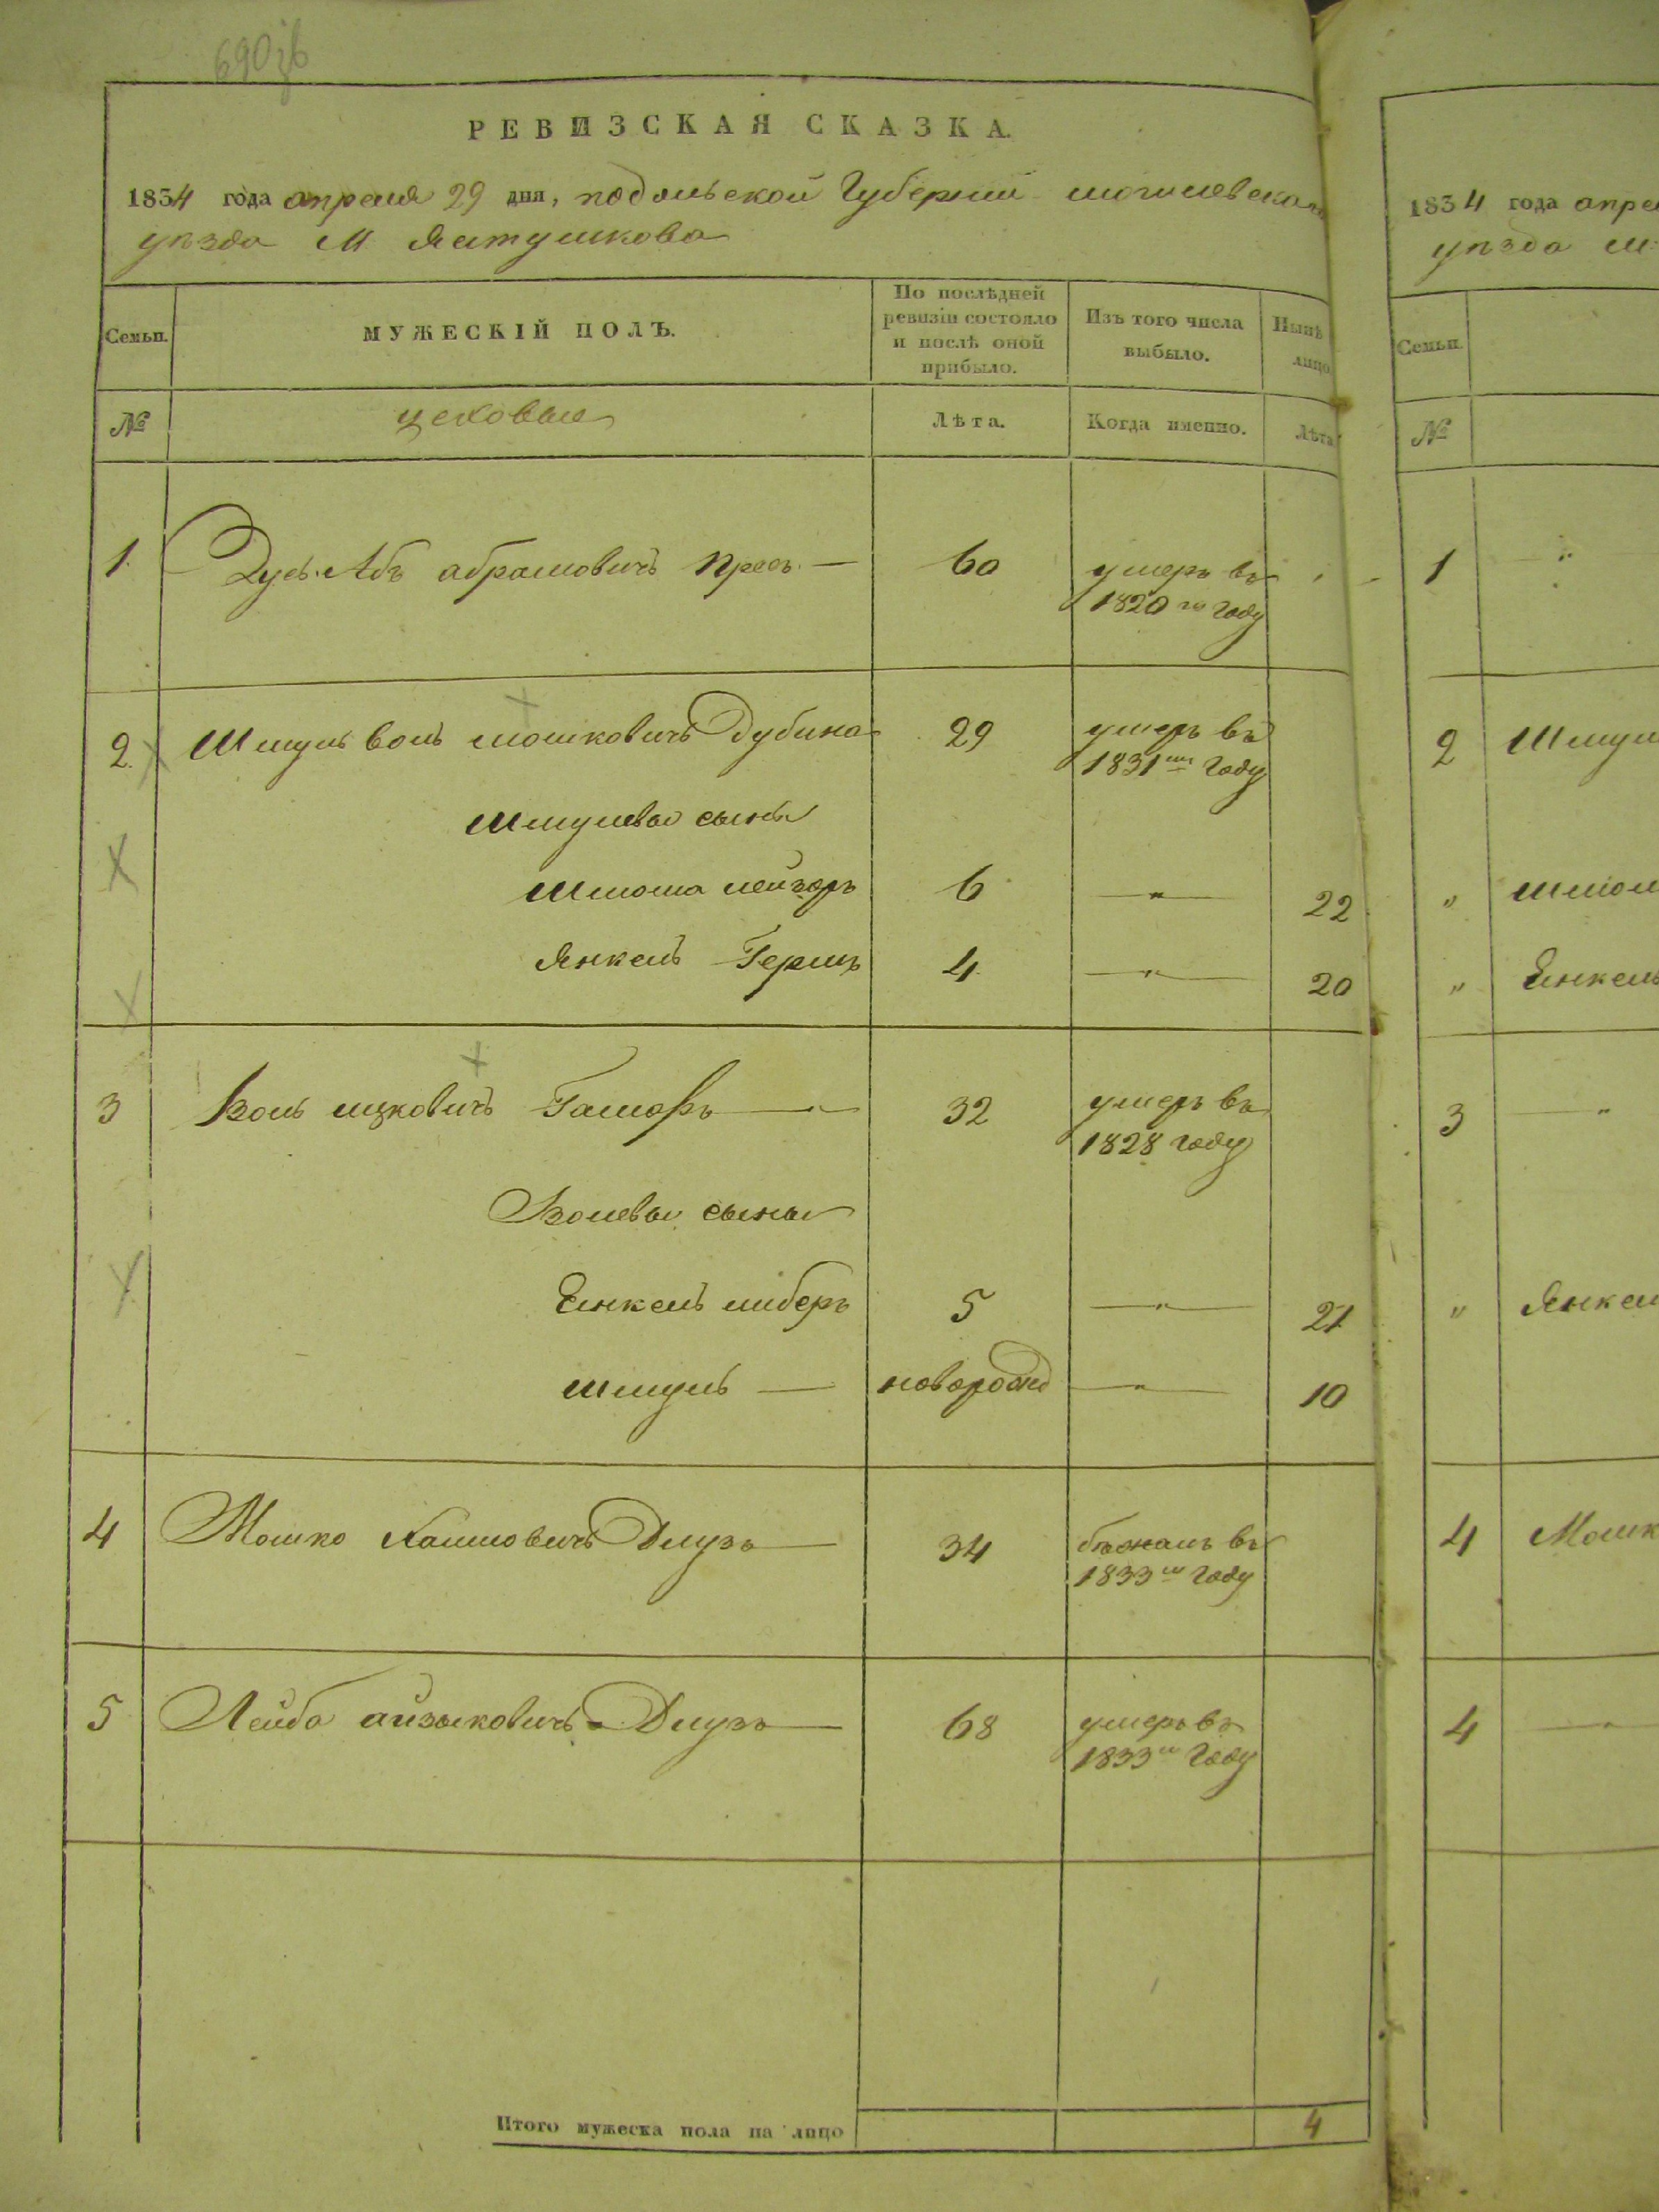 690 зв
РЕВИЗСКАЯ СКАЗКА.
1834 года апреля 29 дня, подольской Губернии могилевскаго
уезда М Ялтушкова
Семьи.
МУЖЕСКІЙ ПОЛЪ.
По послѣдней ревизіи состояло и послѣ оной прибыло.
Изъ того числа выбыло.
Нынѣ лицо
№
цеховые
Лѣта.
Когда именно.
Лѣта
1. Абъ абрамовичъ 60 умеръ въ
1820 го году
2. Шмуль волъ мошковичъ Дубина 29 умеръ въ
1831 му году
Шмулевы сыны
Шлиома лейзоръ 6 — " — 22
Янкель Гершъ 4 — " — 20
3 Воль ицковичъ 32 умеръ въ
1828 году
Волевы сыны
Енкель либеръ 5 — " — 21
Шмуль — новорожд — " — 10
4 Мошко Хаимовичъ Длузъ — 34 бежалъ въ
1833 м году
5 Лейба айзыковичъ Длузъ — 68 умеръ въ
1833 м году
Итого мужеска пола на лицо 4
1834 года апре
уезда м
Семьи.
№
1 "
2 Шмул
" Шлиом
" Енкель
3 "
" Янкел
4 Мошк
4